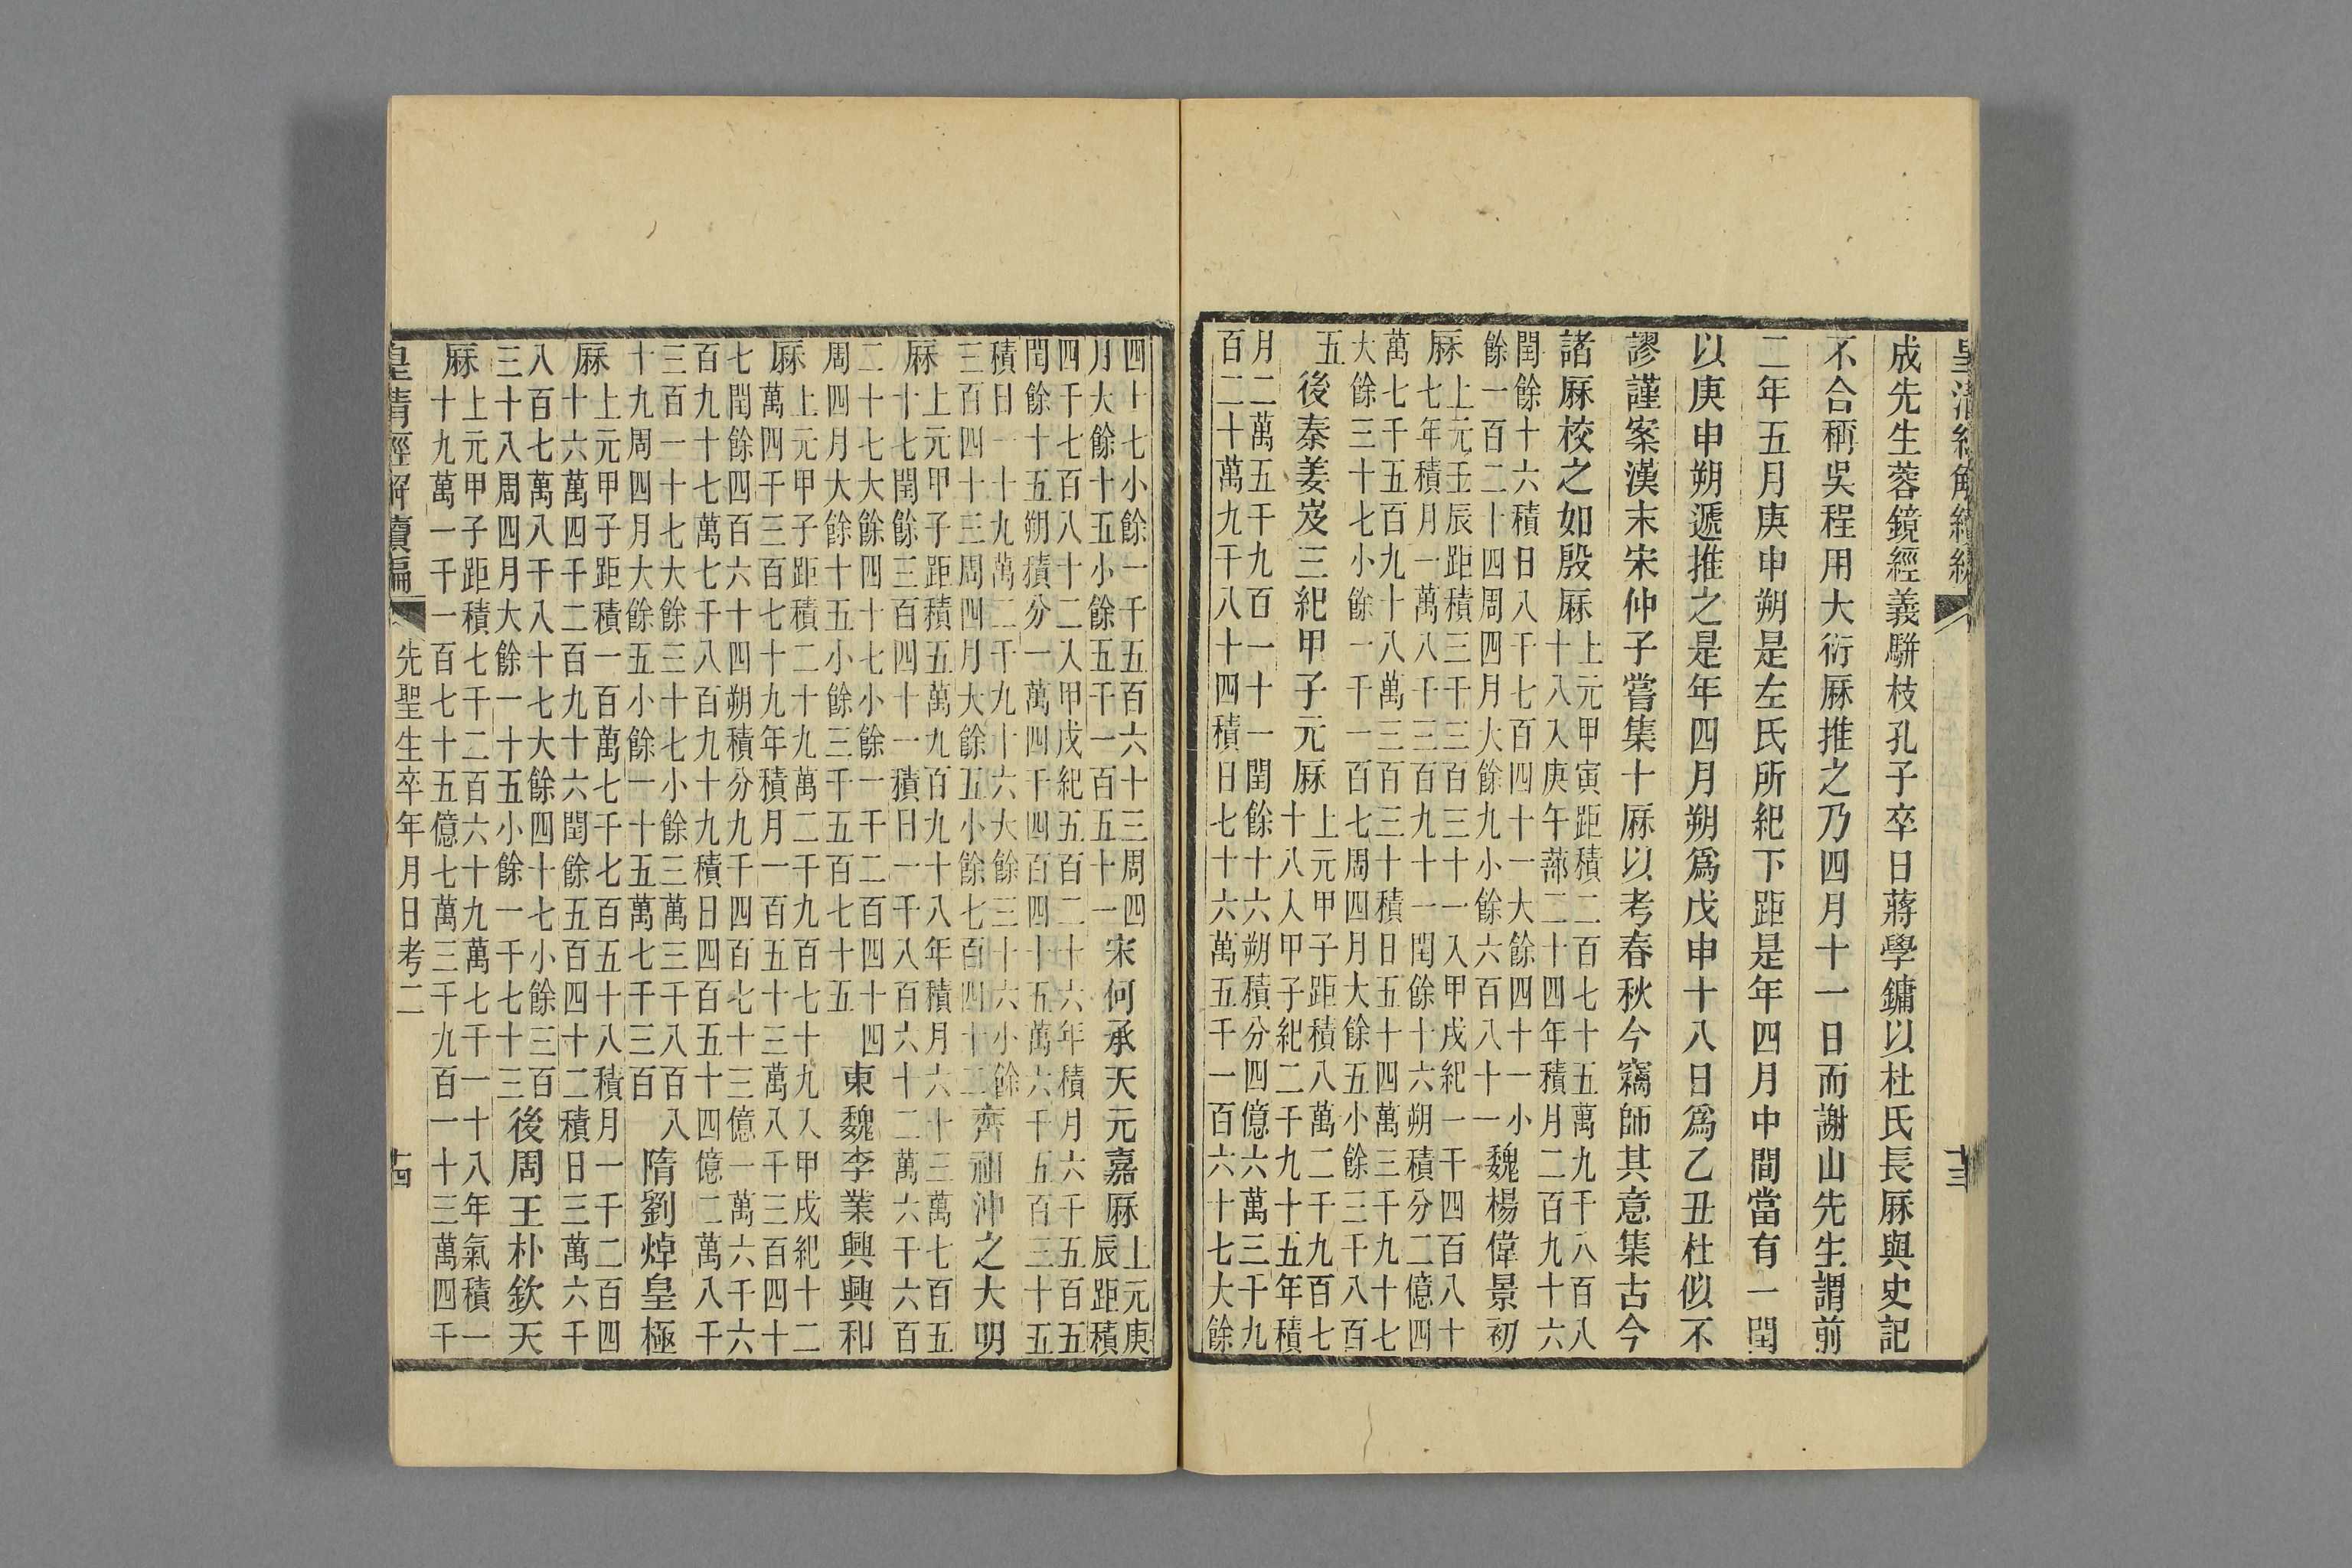 成先生蓉鏡經義駢枝孔子卒日蔣學鏞以杜氏長厤與史記
不合稱吳程用大衍厤推之乃四月十一日而謝山先生謂前
二年五月庚申朔是左氏所紀下距是年四月中間當有一閏
以庚申朔遞推之是年四月朔爲戊申十八日爲乙丑杜似不
謬謹案漢末宋仲子嘗集十厤以考春秋今竊師其意集古今
諸厤校之如殷厤
上元甲寅距積二百七十五萬九千八百八
十八入庚午蔀二十四年積月二百九十六
閏餘十六積日八千七百四十一大餘四十一小
餘一百二十四周四月大餘九小餘六百八十一
魏楊偉景初
厤
上元壬辰距積三千三百三十一入甲戌紀一千四百八十
七年積月一萬八千三百九十一閏餘十六朔積分二億四
萬七千五百九十八萬三百三十積日五十四萬三千九十七
大餘三十七小餘一千一百七周四月大餘五小餘三千八百
五
後秦姜岌三紀甲子元厤
上元甲子距積八萬二千九百七
十八入甲子紀二千九十五年積
月二萬五千九百一十一閏餘十六朔積分四億六萬三千九
百二十萬九千八十四積日七十六萬五千一百六十七大餘
四十七小餘一千五百六十三周四
月大餘十五小餘五千一百五十一
宋何承天元嘉厤
上元庚
辰距積
四千七百八十二入甲戌紀五百二十六年積月六千五百五
閏餘十五朔積分一萬四千四百四十五萬六千五百三十五
積日一十九萬二千九十六大餘三十六小餘
三百四十三周四月大餘五小餘七百四十二
齊祖沖之大明
厤
上元甲子距積五萬九百九十八年積月六十三萬七百五
十七閏餘三百四十一積日一千八百六十二萬六千六百
二十七大餘四十七小餘一千二百四十四
周四月大餘十五小餘三千五百七十五
東魏李業興興和
厤
上元甲子距積二十九萬二千九百七十九入甲戌紀十二
萬四千三百七十九年積月一百五十三萬八千三百四十
七閏餘四百六十四朔積分九千四百七十三億一萬六千六
百九十七萬七千八百九十九積日四百五十四億二萬八千
三百一十七大餘三十七小餘三萬三千八百八
十九周四月大餘五小餘一十五萬七千三百
隋劉焯皇極
厤
上元甲子距積一百萬七千七百五十八積月一千二百四
十六萬四千二百九十六閏餘五百四十二積日三萬六千
八百七萬八千八十七大餘四十七小餘三百
三十八周四月大餘一十五小餘一千七十三
後周王朴欽天
厤
上元甲子距積七千二百六十九萬七千一十八年氣積一
十九萬一千一百七十五億七萬三千九百一十三萬四千
皇清經解續編
先聖生卒年月日考二
十四